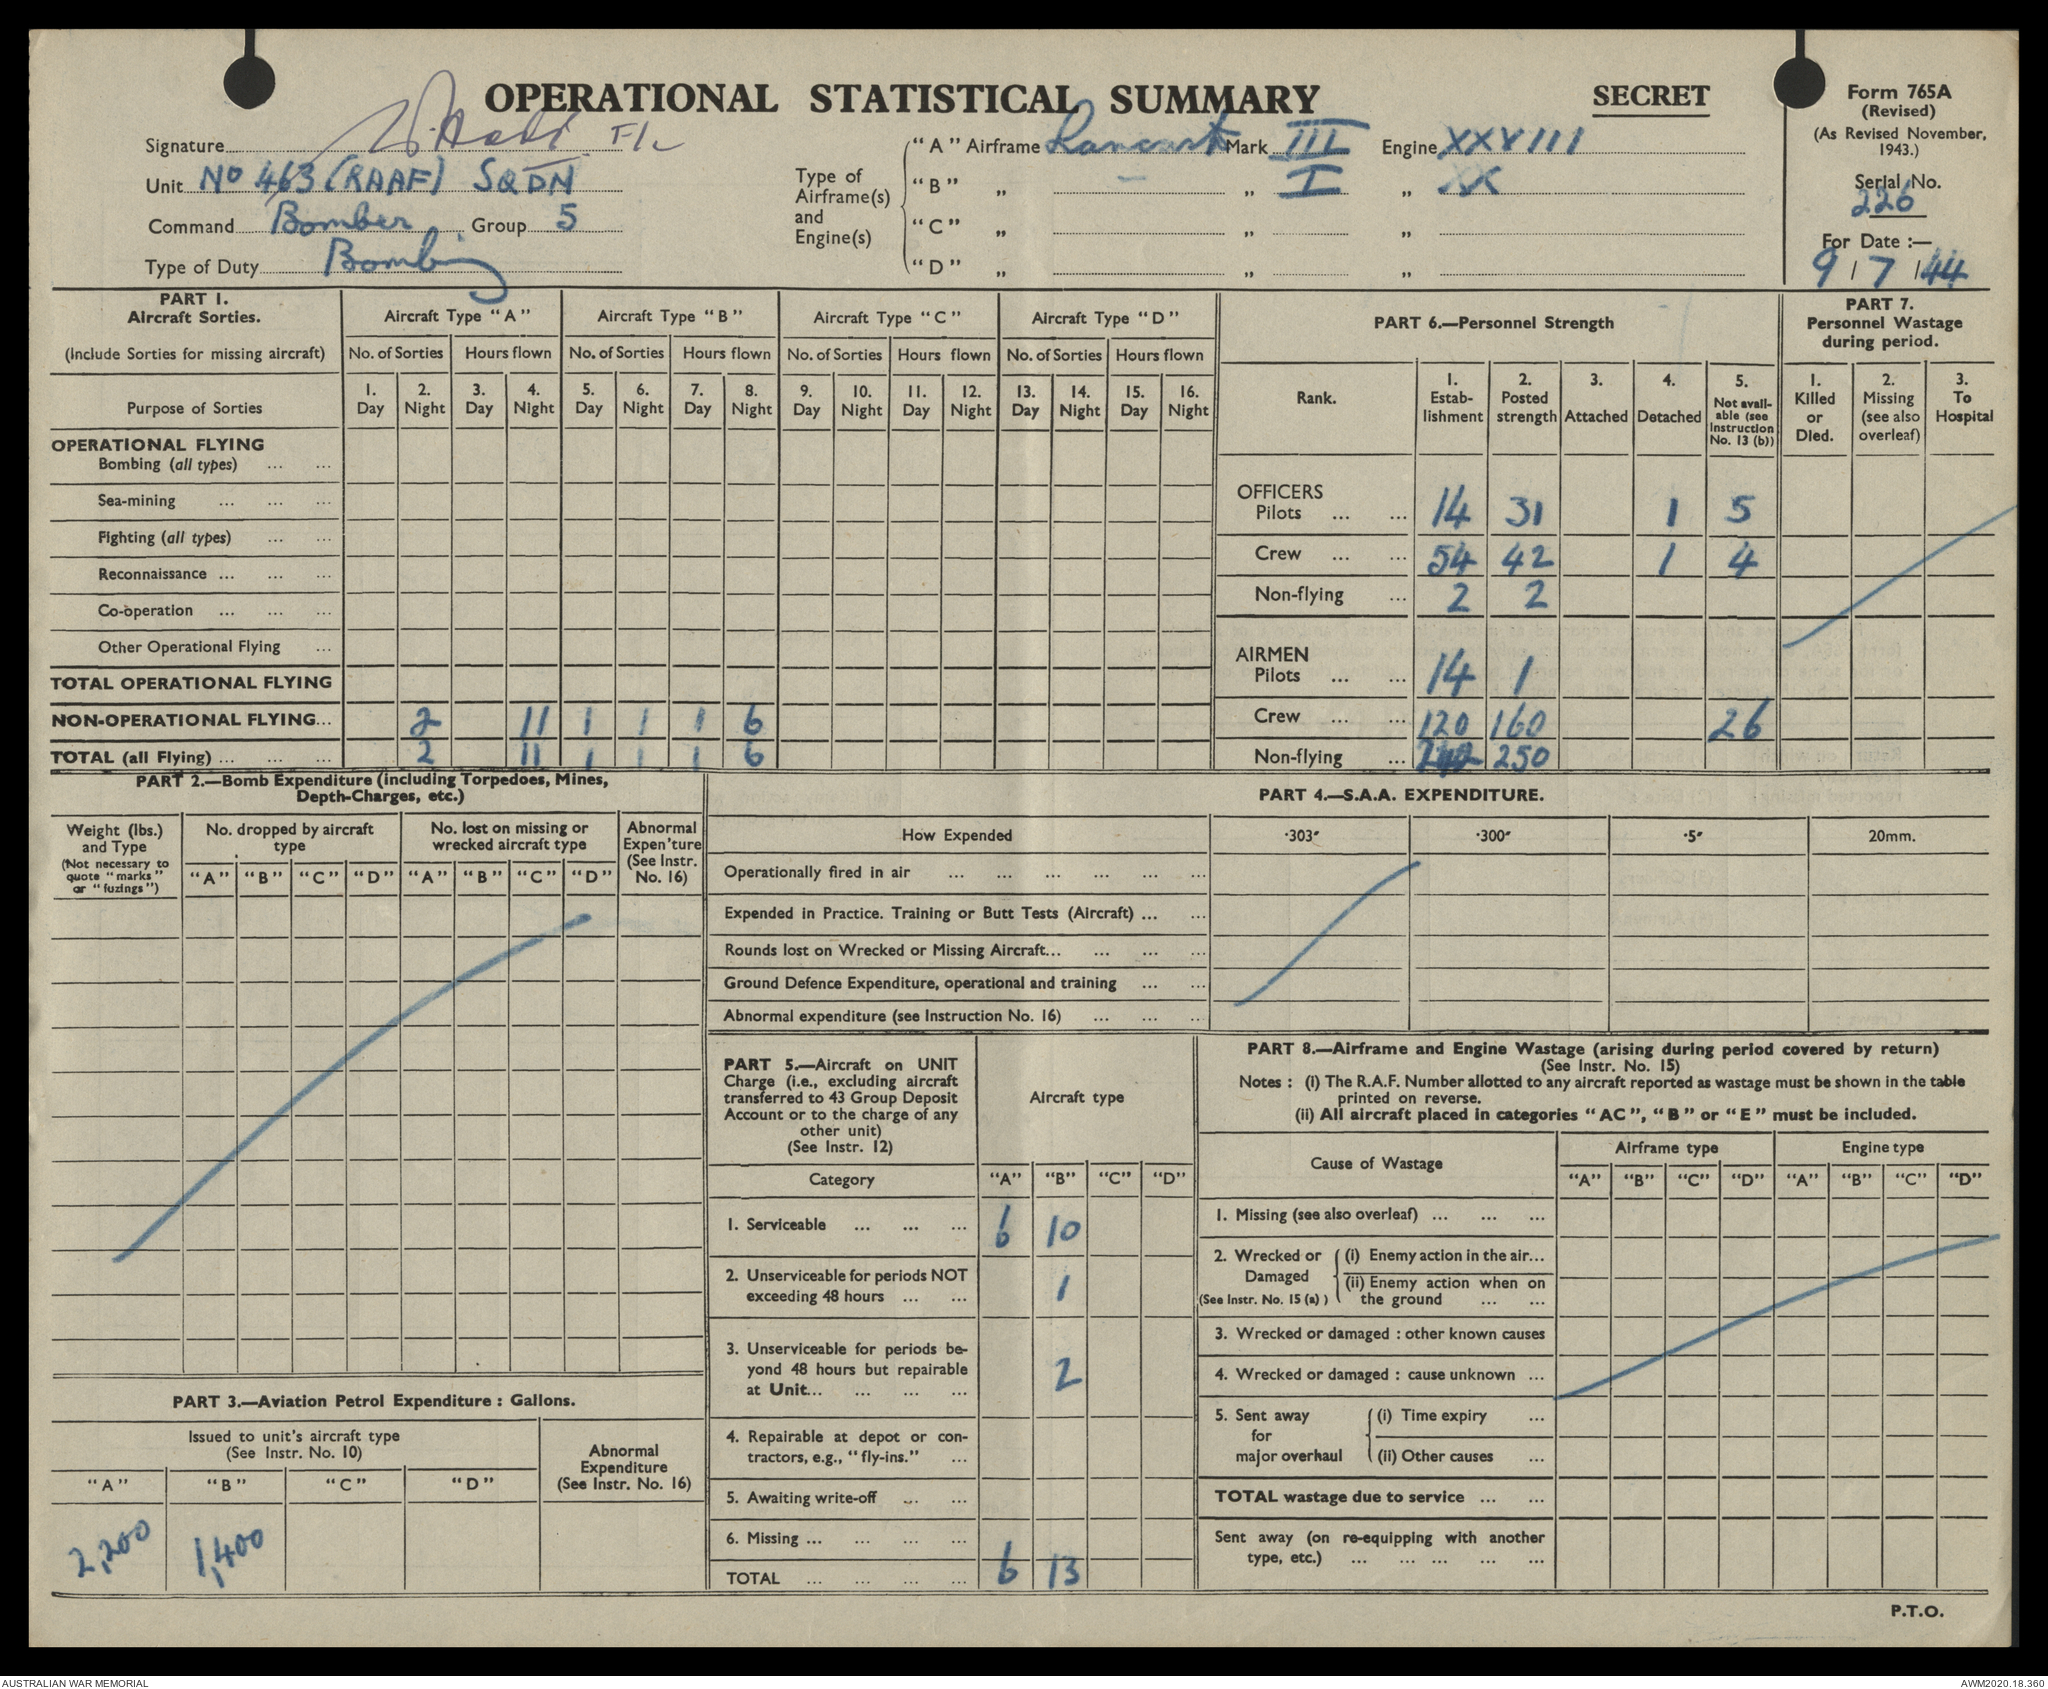 OPERATIONAL STATISTICAL SUMMARY
SECRET
Form 765A
(Revised)
(As Revised November, 1943.)
Serial No.
226
For Date :—
9 / 7 / 44
Signature F/L
Unit No 463 (RAAF) SQDN
Command Bomber Group 5
Type of Duty Bombing
Type of Airframe(s) and Engine(s)
"A" Airframe Lancaster Mark III Engine XXVIII
"B" „ — „ I „ XX
"C" „ „ „
"D" „ „ „
PART 1.
Aircraft Sorties.
(Include Sorties for missing aircraft)
Aircraft Type "A" Aircraft Type "B" Aircraft Type "C" Aircraft Type "D"
No. of Sorties Hours flown No. of Sorties Hours flown No. of Sorties Hours flown No. of Sorties Hours flown
Purpose of Sorties
1. Day 2. Night 3. Day 4. Night 5. Day 6. Night 7. Day 8. Night 9. Day 10. Night 11. Day 12. Night 13. Day 14. Night 15. Day 16. Night
OPERATIONAL FLYING
Bombing (all types) ... ...
Sea-mining ... ... ...
Fighting (all types) ... ...
Reconnaissance ... ... ...
Co-operation ... ... ...
Other Operational Flying ...
TOTAL OPERATIONAL FLYING
NON-OPERATIONAL FLYING... 2 11 1 1 1 6
TOTAL (all Flying) ... ... ... 2 11 1 1 1 6
PART 6.—Personnel Strength
Rank.
1. Estab-lishment
2. Posted strength
3. Attached
4. Detached
5. Not avail-able (see Instruction No. 13 (b))
OFFICERS
Pilots ... ... 14 31 1 5
Crew ... ... 54 42 1 4
Non-flying ... 2 2
AIRMEN
Pilots ... ... 14 1
Crew ... ... 120 160 26
Non-flying ... 250
PART 7.
Personnel Wastage during period.
1. Killed or Died.
2. Missing (see also overleaf)
3. To Hospital
PART 2.—Bomb Expenditure (including Torpedoes, Mines,
Depth-Charges, etc.)
Weight (lbs.) and Type
(Not necessary to quote "marks" or "fuzings")
No. dropped by aircraft type
No. lost on missing or wrecked aircraft type
Abnormal Expen'ture (See Instr. No. 16)
"A" "B" "C" "D" "A" "B" "C" "D"
PART 3.—Aviation Petrol Expenditure : Gallons.
Issued to unit's aircraft type
(See Instr. No. 10)
Abnormal Expenditure
(See Instr. No. 16)
"A" "B" "C" "D"
2,200 1,400
PART 4.—S.A.A. EXPENDITURE.
How Expended ·303" ·300" ·5" 20mm.
Operationally fired in air ... ... ... ... ... ...
Expended in Practice. Training or Butt Tests (Aircraft) ... ...
Rounds lost on Wrecked or Missing Aircraft... ... ... ...
Ground Defence Expenditure, operational and training ... ...
Abnormal expenditure (see Instruction No. 16) ... ... ...
PART 5.—Aircraft on UNIT
Charge (i.e., excluding aircraft
transferred to 43 Group Deposit
Account or to the charge of any
other unit)
(See Instr. 12)
Aircraft type
Category "A" "B" "C" "D"
1. Serviceable ... ... ... 6 10
2. Unserviceable for periods NOT
exceeding 48 hours ... ... 1
3. Unserviceable for periods be-
yond 48 hours but repairable
at Unit... ... ... ... 2
4. Repairable at depot or con-
tractors, e.g., "fly-ins." ...
5. Awaiting write-off ... ...
6. Missing ... ... ... ...
TOTAL ... ... ... ... 6 13
PART 8.—Airframe and Engine Wastage (arising during period covered by return)
(See Instr. No. 15)
Notes : (i) The R.A.F. Number allotted to any aircraft reported as wastage must be shown in the table
printed on reverse.
(ii) All aircraft placed in categories "AC", "B" or "E" must be included.
Cause of Wastage
Airframe type Engine type
"A" "B" "C" "D" "A" "B" "C" "D"
1. Missing (see also overleaf) ... ... ...
2. Wrecked or Damaged
(See Instr. No. 15 (a) )
(i) Enemy action in the air...
(ii) Enemy action when on
the ground ... ...
3. Wrecked or damaged : other known causes
4. Wrecked or damaged : cause unknown ...
5. Sent away for major overhaul
(i) Time expiry ...
(ii) Other causes ...
TOTAL wastage due to service ... ...
Sent away (on re-equipping with another
type, etc.) ... ... ... ... ...
P.T.O.
AUSTRALIAN WAR MEMORIAL
AWM2020.18.360